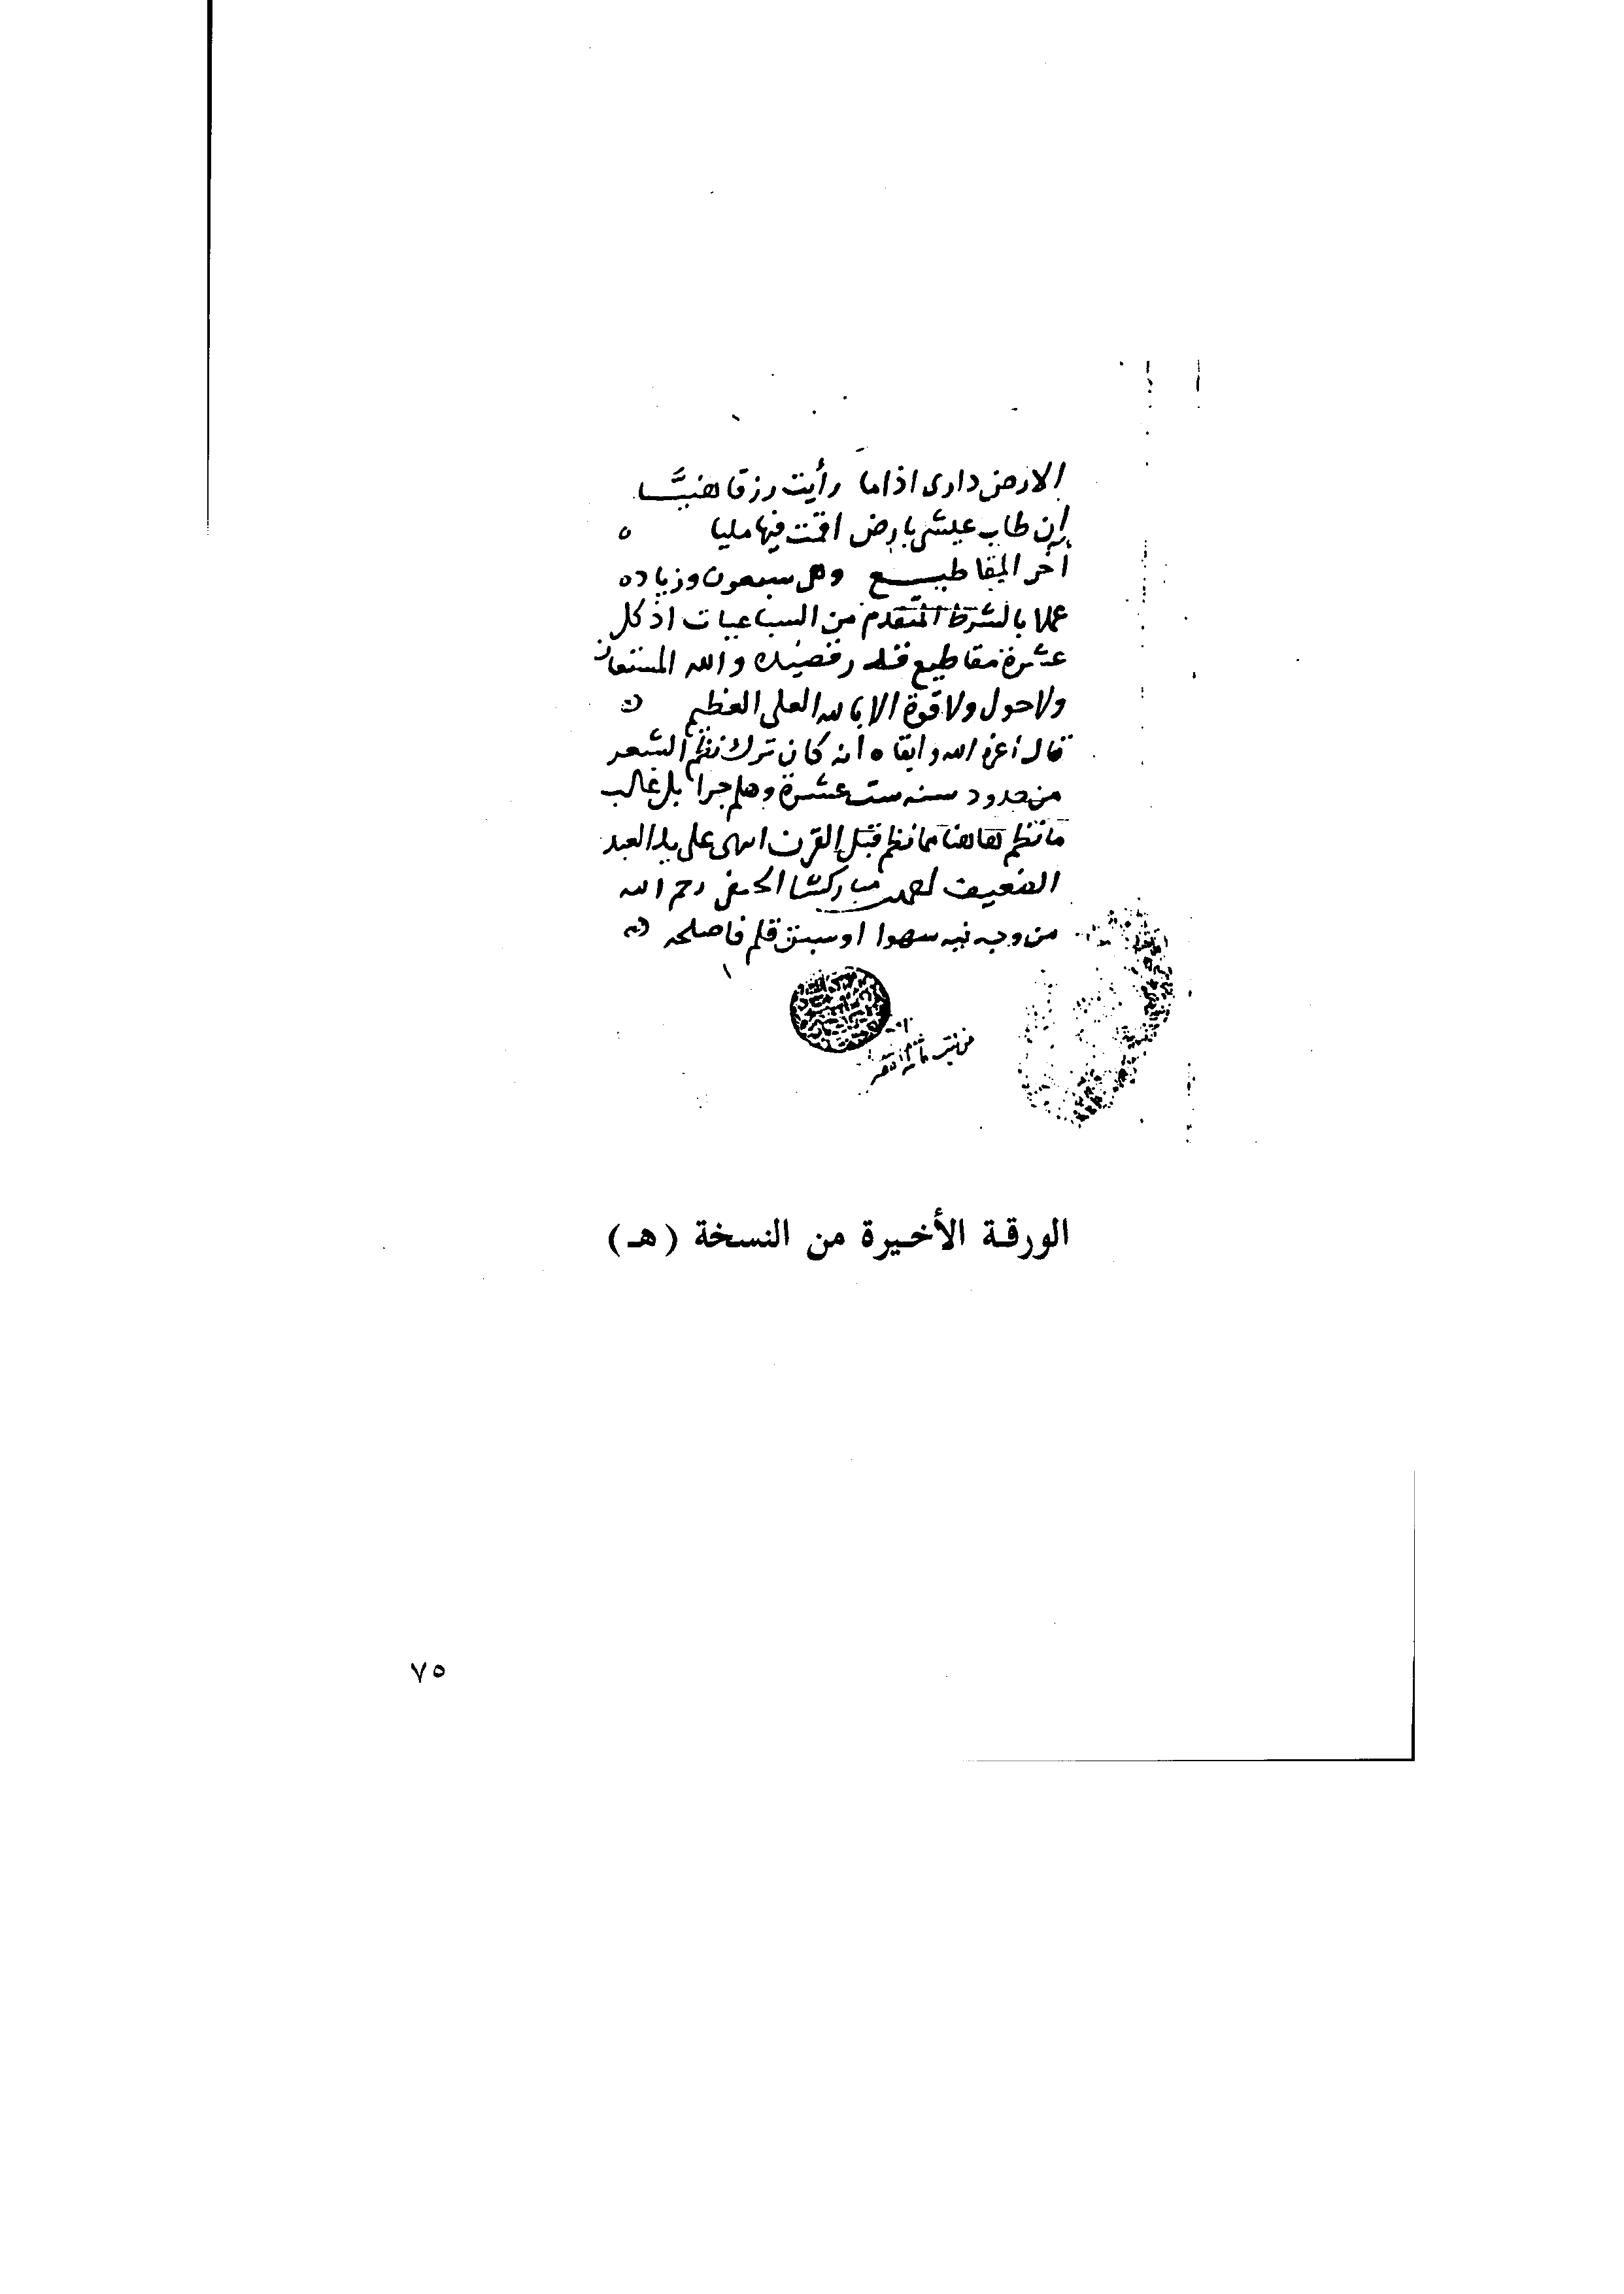 الارض دارى اذا ما رأيت رزقا هنيَّا
إن طاب عيشى بارض اقمت فيها مليا ٥
آخر المقاطيع وهى سبعون وزياده
عملا بالشرط المتقدم من السباعيات اذ كل
عشرة مقاطيع والله المستعان
ولا حول ولا قوة الا بالله العلى العظيم
قال أعزه الله وابقاه انه كان ترك نظم الشعر
من حدود سنه ست عشرة وهلم جرا بل غالب
ما نظم هاهنا مما نظم قبل القرن انتهى على يد العبد
الضعيف الحنفى رحم الله
من وجد فيه سهوا او سبق قلم فاصلحه
الورقة الأخيرة من النسخة (هـ)
٧٥